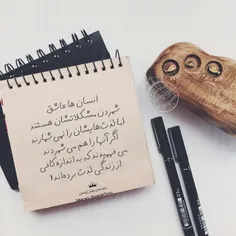 انسان ها عاشق
شمردن مشکلاتشان هستند
اما لذت هایشان را نمی شمارند
اگر آنها را هم می شمردند
می فهمیدند که به اندازه کافی
از زندگی لذت برده اند!